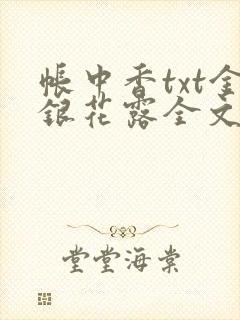 帐中香txt金
银花露全文
堂堂海棠